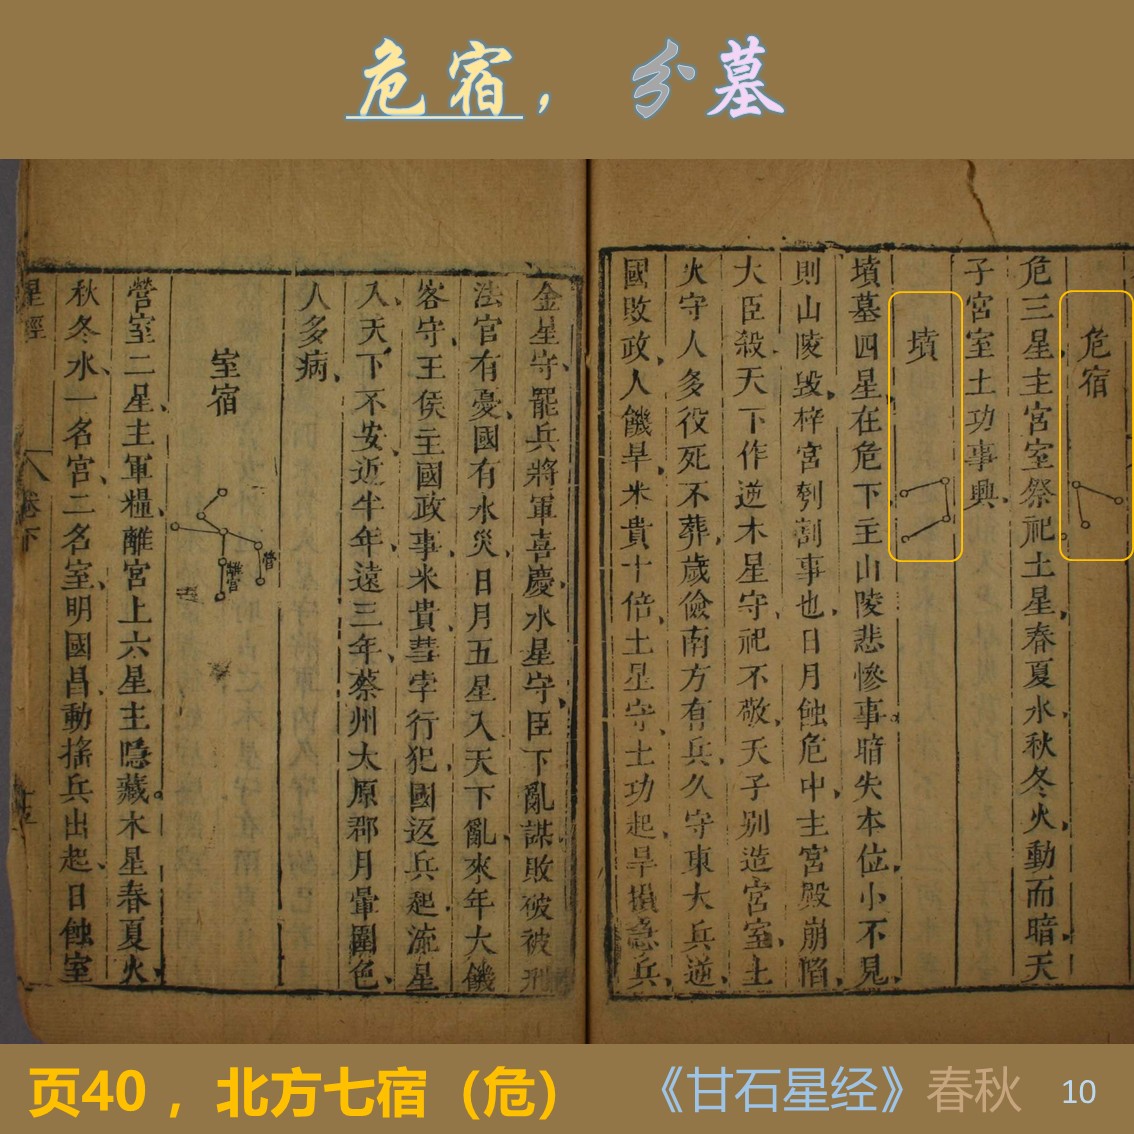 危宿，分墓
危宿
危三星、主宮室祭祀土星、春夏水、秋冬火、動而暗天
子宮室土功事興、
墳
墳墓四星、在危下、主山陵悲慘事。暗失本位、小不見、
則山陵毀、梓宮刳割事也、日月蝕危中、主宮殿崩陷、
大臣殺天下作逆木星守、祀不敬、天子别造宮室、土
火守人多役死不葬、歲儉南方有兵、久守東大兵逆、
國敗政、人饑旱、米貴十倍、土星守、土功起、旱損急兵、
金星守、罷兵將軍喜慶、水星守、臣下亂謀敗破被刑
法官有憂、國有水災、日月五星入天下亂、來年大饑
客守、王侯主國政事、米貴、彗孛行犯、國返兵起、流星
入、天下不安、近半年、遠三年、蔡州太原郡月暈圍色、
人多病、
室宿
離宮
營
營室二星、主軍糧、離宮上六星主隱藏。木星春夏火、
秋冬水、一名宮、二名室、明國昌、動搖兵出起、日蝕室
星經
卷下
页40，北方七宿（危）
《甘石星经》春秋
10